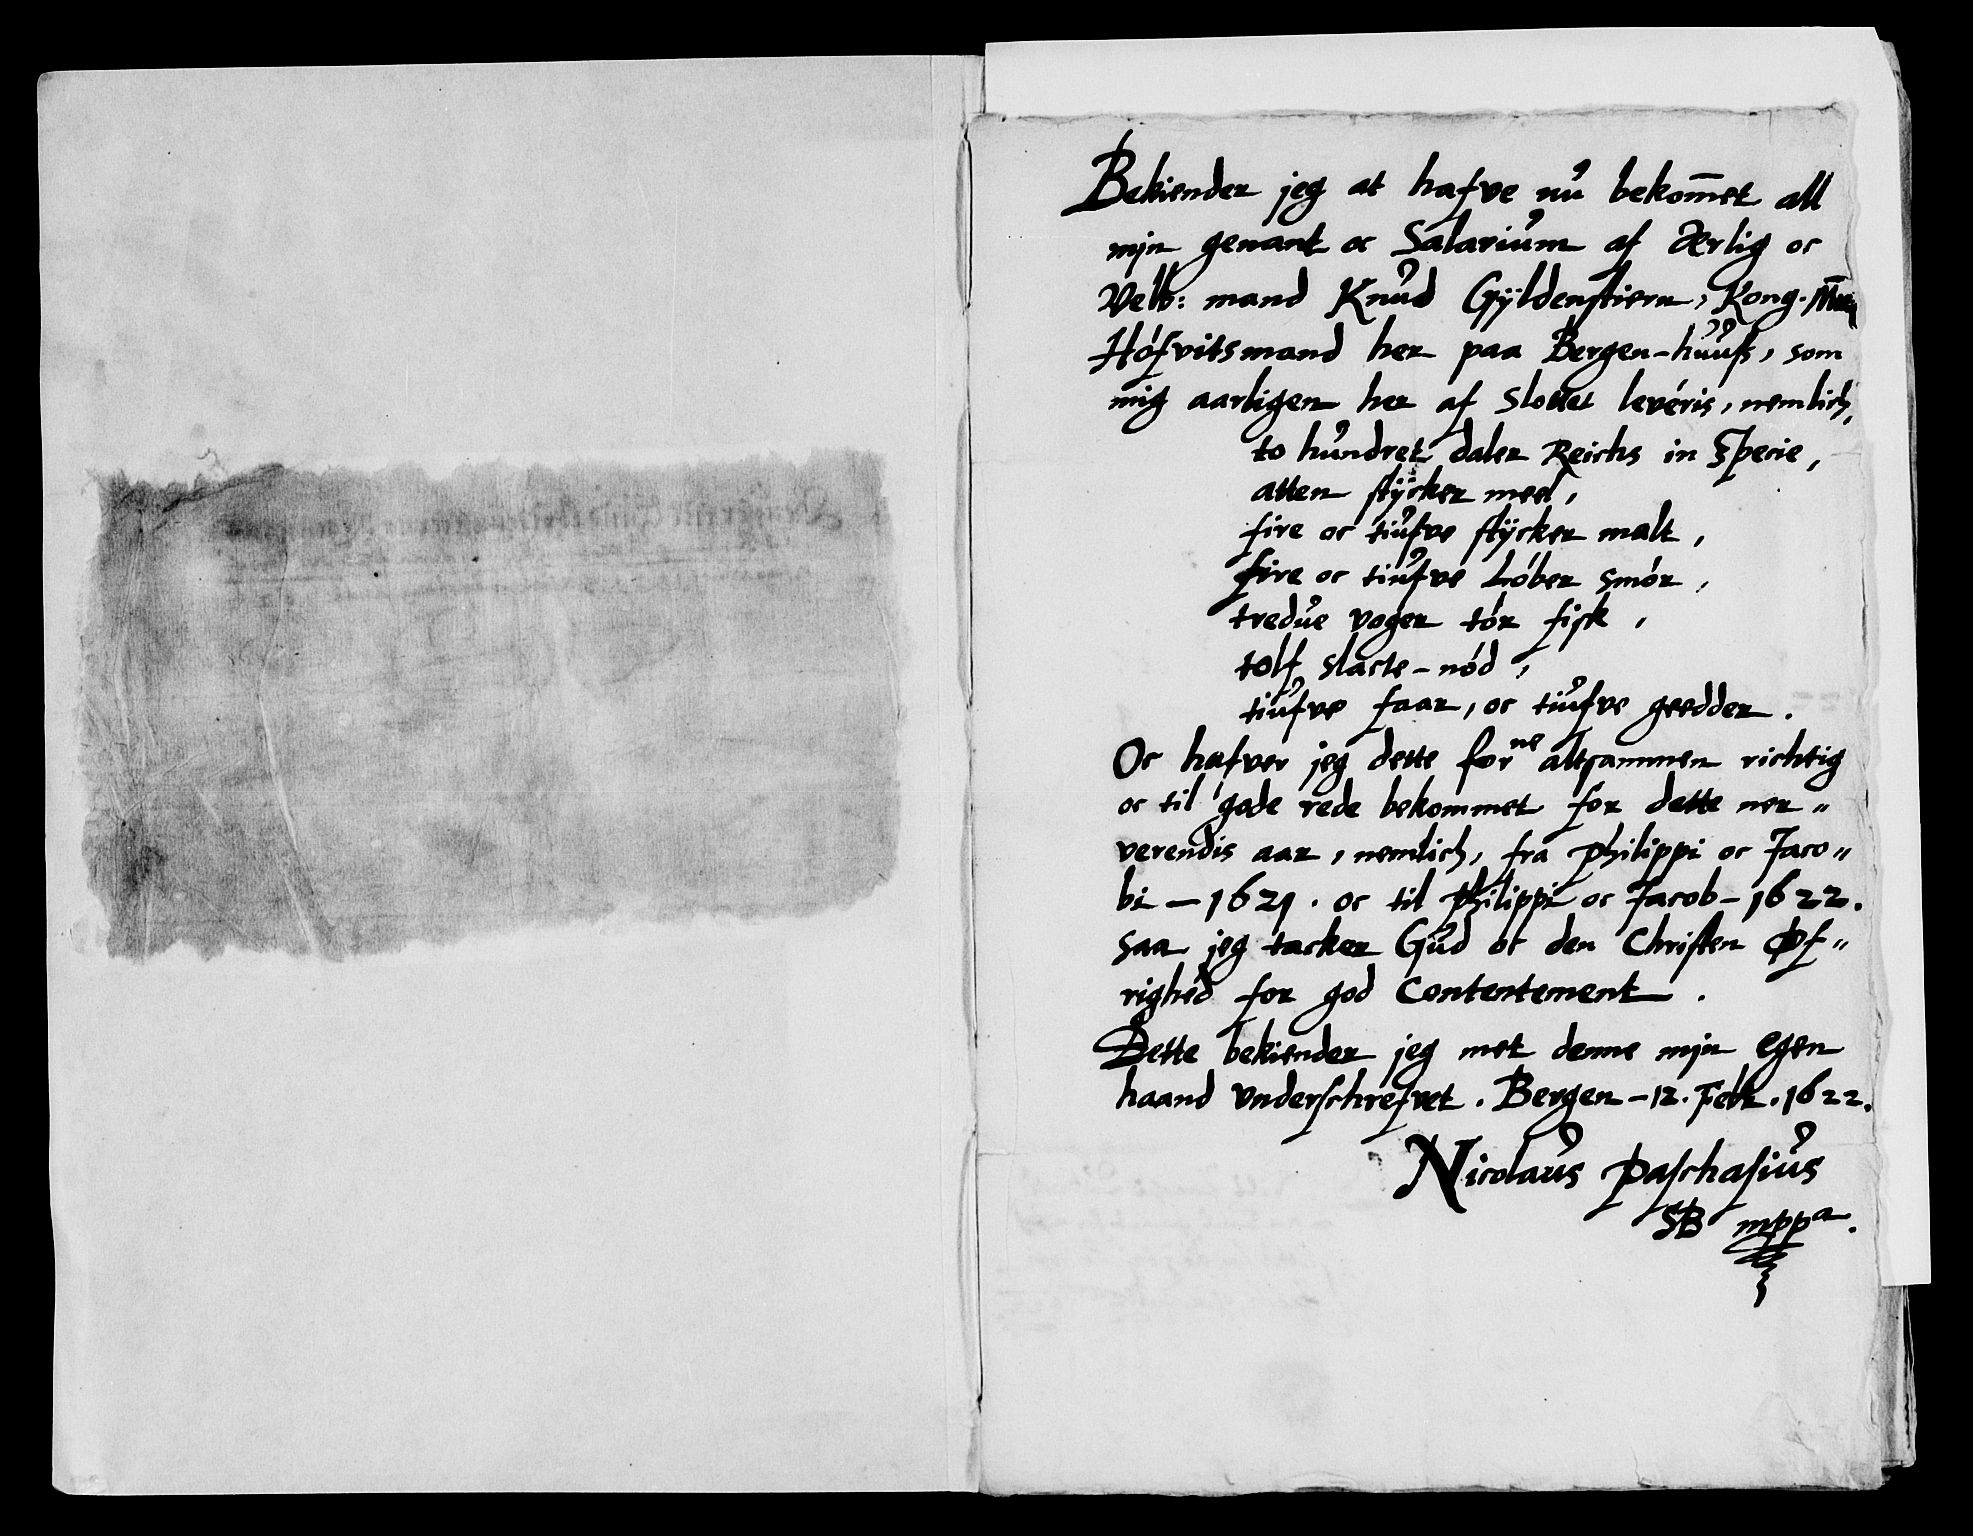 Bekiender jeg at hafve nu bekom̄et all
mjn genant oc Salarium af Ærlig oc
Velb: mand Knud Gÿldenstiern, Kong.
Hófvitsmand her paa Bergen-huuſs, som
mig aarligen her af Slottet leveris, nemlich,
to hundret daler Reichs in Specie,
atten stÿcker meel,
fire oc tiufve stÿcker malt,
fire oc tiufve Lóber smór,
tredue voger tór fisk,
tolf slacte-nód,
tiufve faar, oc tiufve geedder.
Oc hafver jeg dette forne altsammen richtig
oc til gode rede bekommet for dette ner„
verendis aar, nemlich, fra Philippi oc Jaco„
bi — 1621. oc til Philippi oc Jacob — 1622.
saa jeg tacker Gud oc den Christen Øf„
righed for god Contentement.
Dette bekiender jeg met denne mjn egen
haand vnderschrefvet. Bergen — 12. Febr. 1622.
Nicolaus Paschasius
SB mppa.